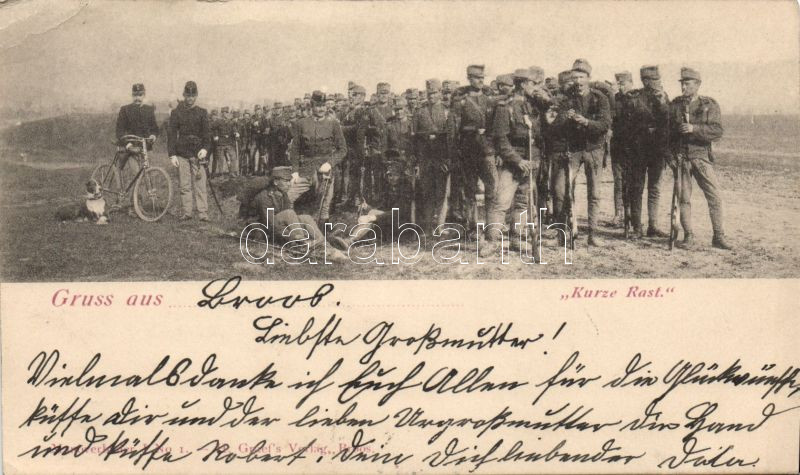 darabanth
Gruss aus Broos. „Kurze Rast."
Liebste Großmutter!
Vielmals danke ich Euch Allen für die Glückwünsche,
küsse Dir und der lieben Urgroßmutter die Hand
und küsse Robert. Dem Dich liebender
No 1. Graef's Verlag, Broos.